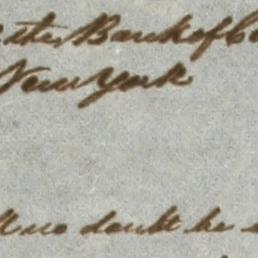 the Bank of
New York
no doubt be